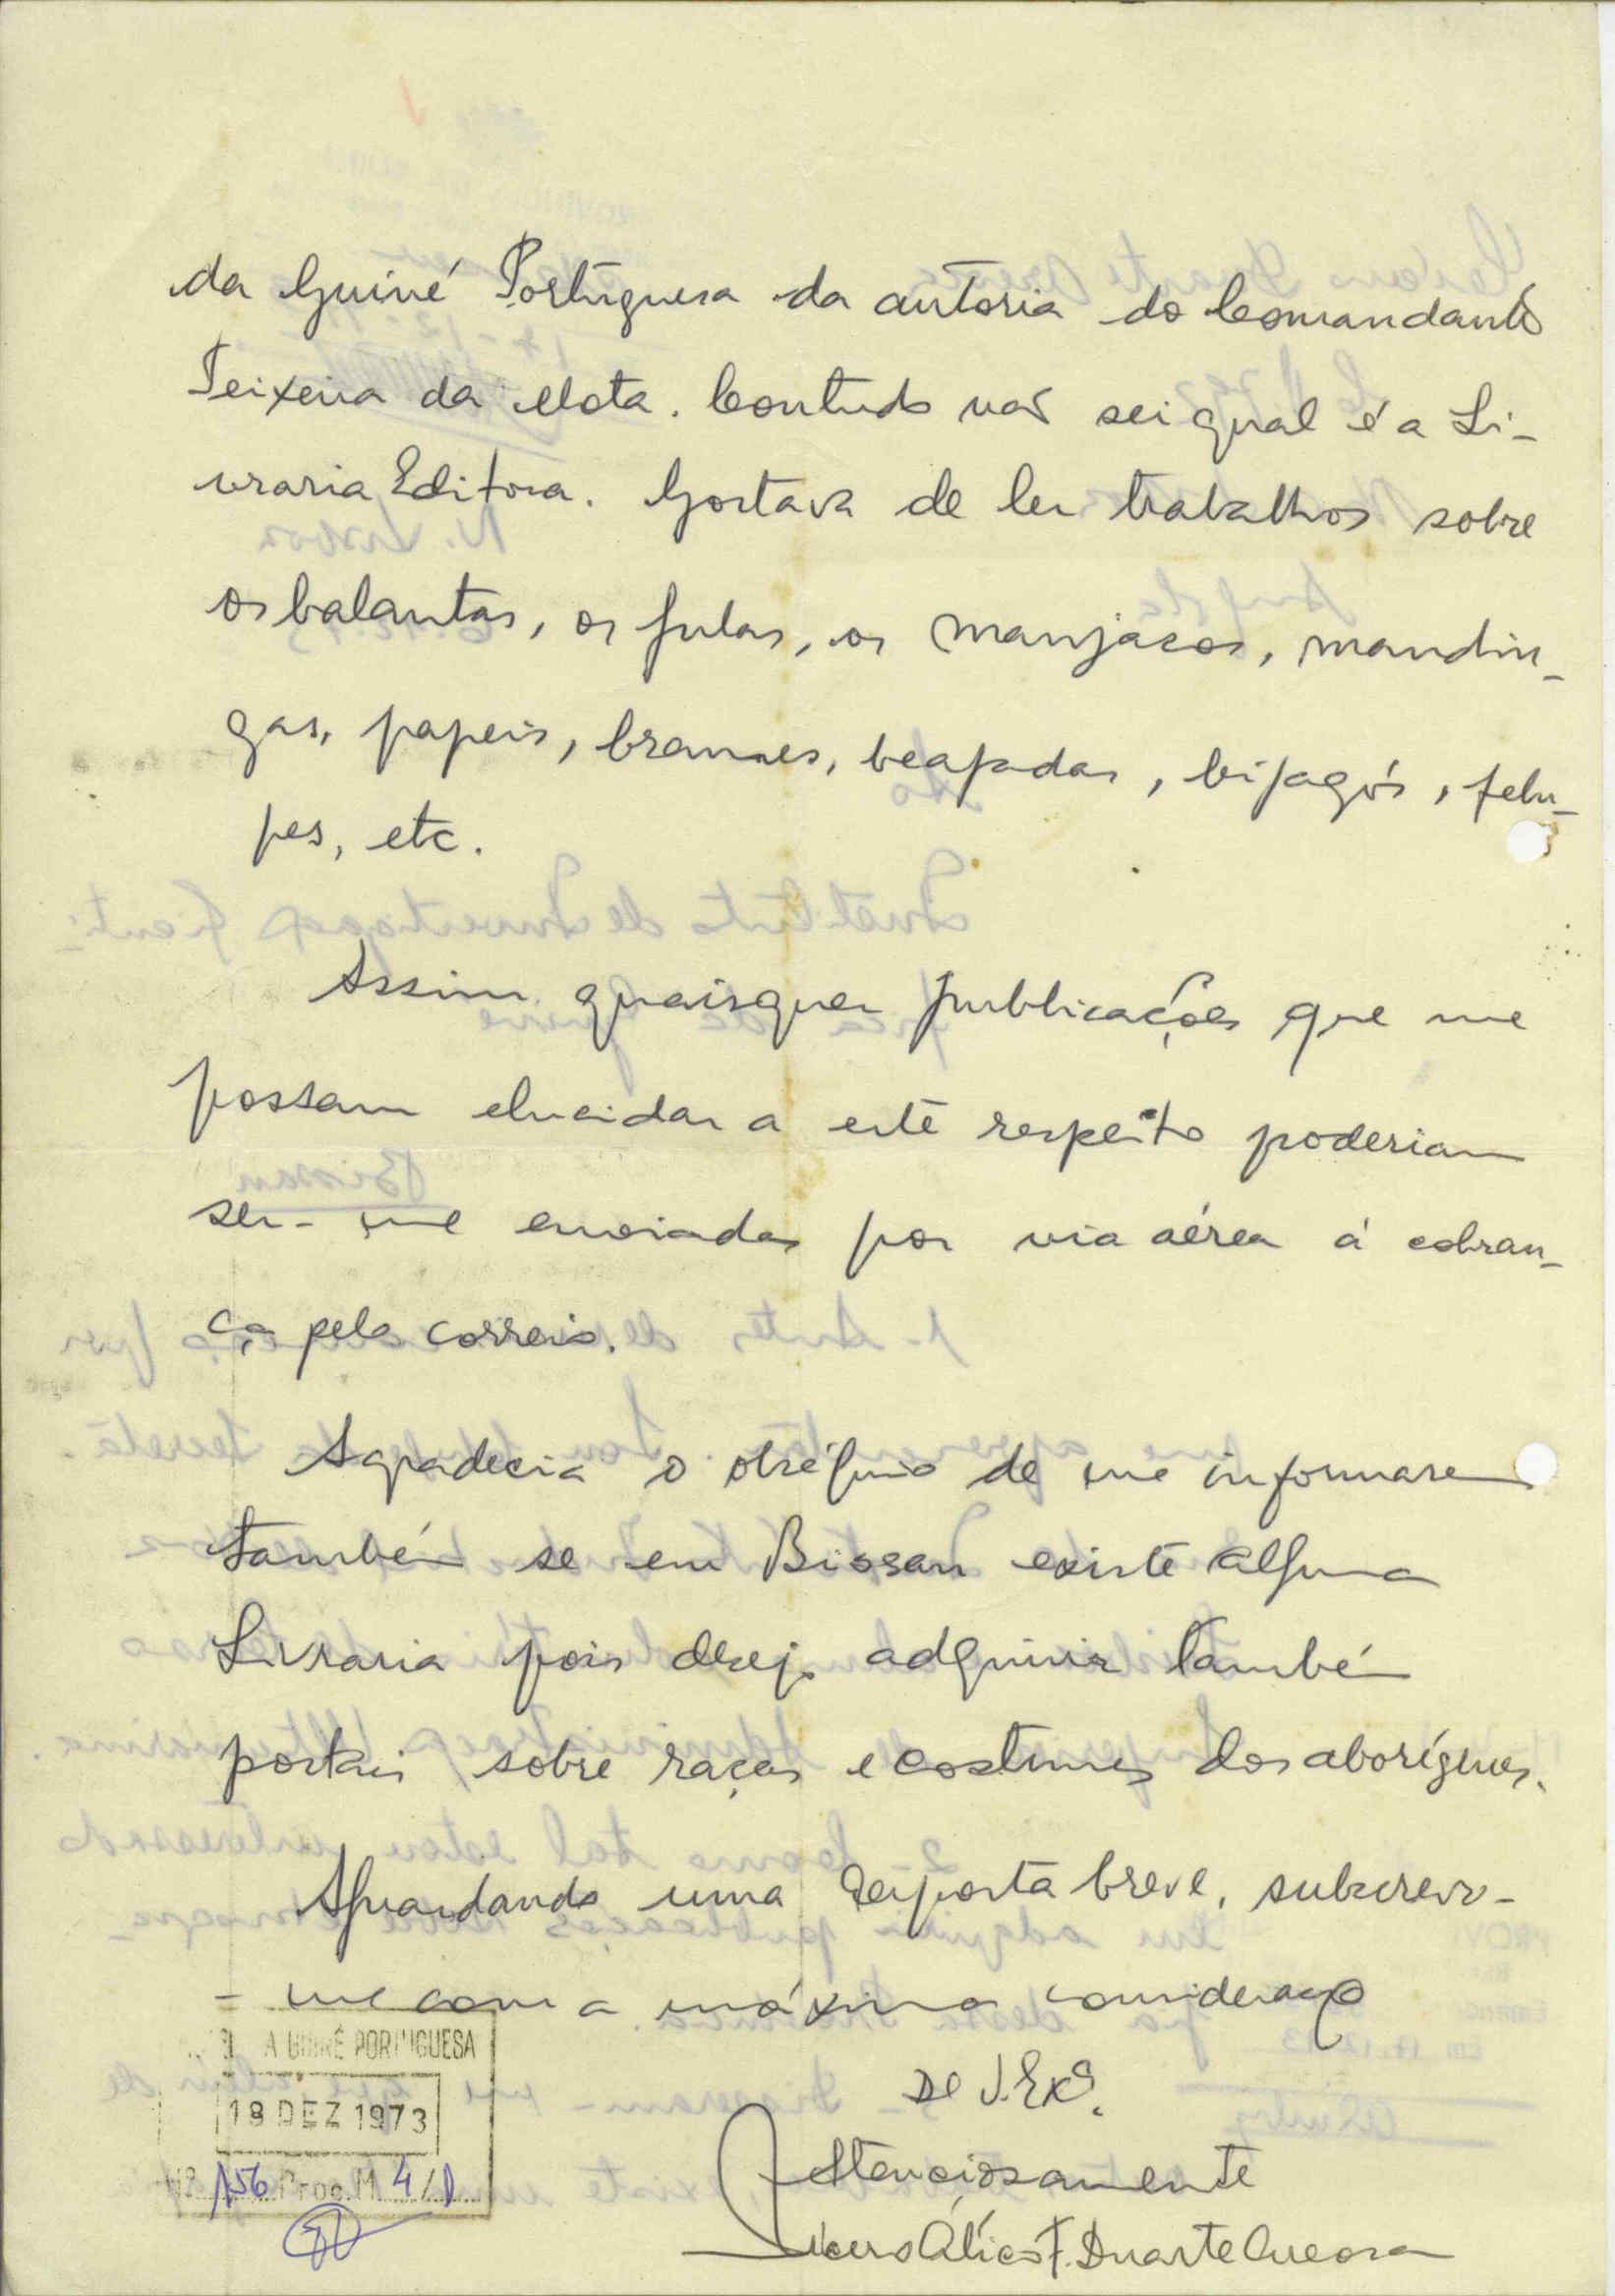 da Guiné Portuguesa da autoria do Comandante
Teixeira da Mota. Contudo não sei qual é a Li-
vraria Editora. Gostava de ler trabalhos sobre
os balantas, os fulas, os manjacos, mandin-
gas, papeis, brames, beafadas, bijagós, felu-
pes, etc.
Assim quaisquer publicações que me
possam elucidar a este respeito poderiam
ser-me enviadas por via aérea á cobran-
ça pelo correio.
Agradecia o obséquio de me informarem
também se em Bissau existe alguma
Livraria pois desejo adquirir também
postais sobre raças e costumes dos aborígenes.
Aguardando uma resposta breve, subscrevo-
-me com a máxima consideração
De V. Exª.
Atenciosamente
Duarte
A GUINÉ PORTUGUESA
19 DEZ 1973
Nº 156 Proc. M 4/D